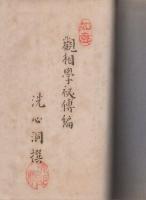 觀相學秘傳編
洗心洞撰